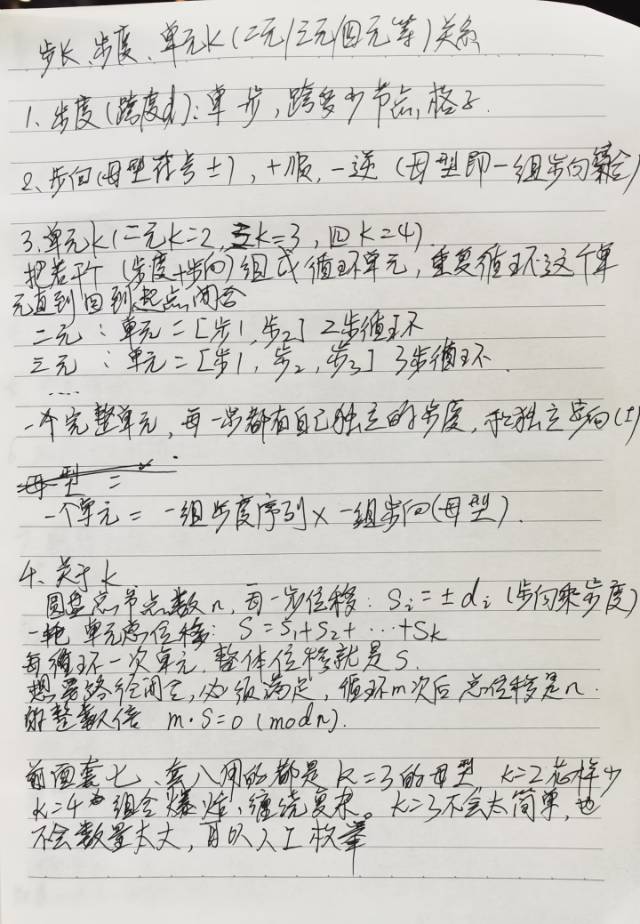 步长、步度、单元K(二元/三元/四元等)关系
1、步度(跨度d):单步,跨多少节点,格子.
2、步向(母型符号±),+顺,-逆(母型即一组步向集合)
3.单元k(二元k=2,三k=3,四k=4).
把若干个(步度+步向)组成循环单元,重复循环这个单
元直到回到起点闭合
二元:单元=[步1,步2] 2步循环
三元:单元=[步1,步2,步3] 3步循环.
......
一个完整单元,每一步都有自己独立的步度,和独立步向(±)
母型 =
一个单元=一组步度序列×一组步向(母型).
4、关于k
圆盘总节点数n,每一步位移:Si=±di(步向乘步度)
一轮 单元总位移:S=S1+S2+…+Sk
每循环一次单元,整体位移就是S.
想要路径闭合,必须满足,循环m次后总位移是n.
的整数倍 m·S=0(modn).
前面套七、套八用的都是k=3的母型 k=2花样少
k=4 组合爆炸,缠绕复杂。k=3不会太简单,也
不会数量太大,可以人工枚举